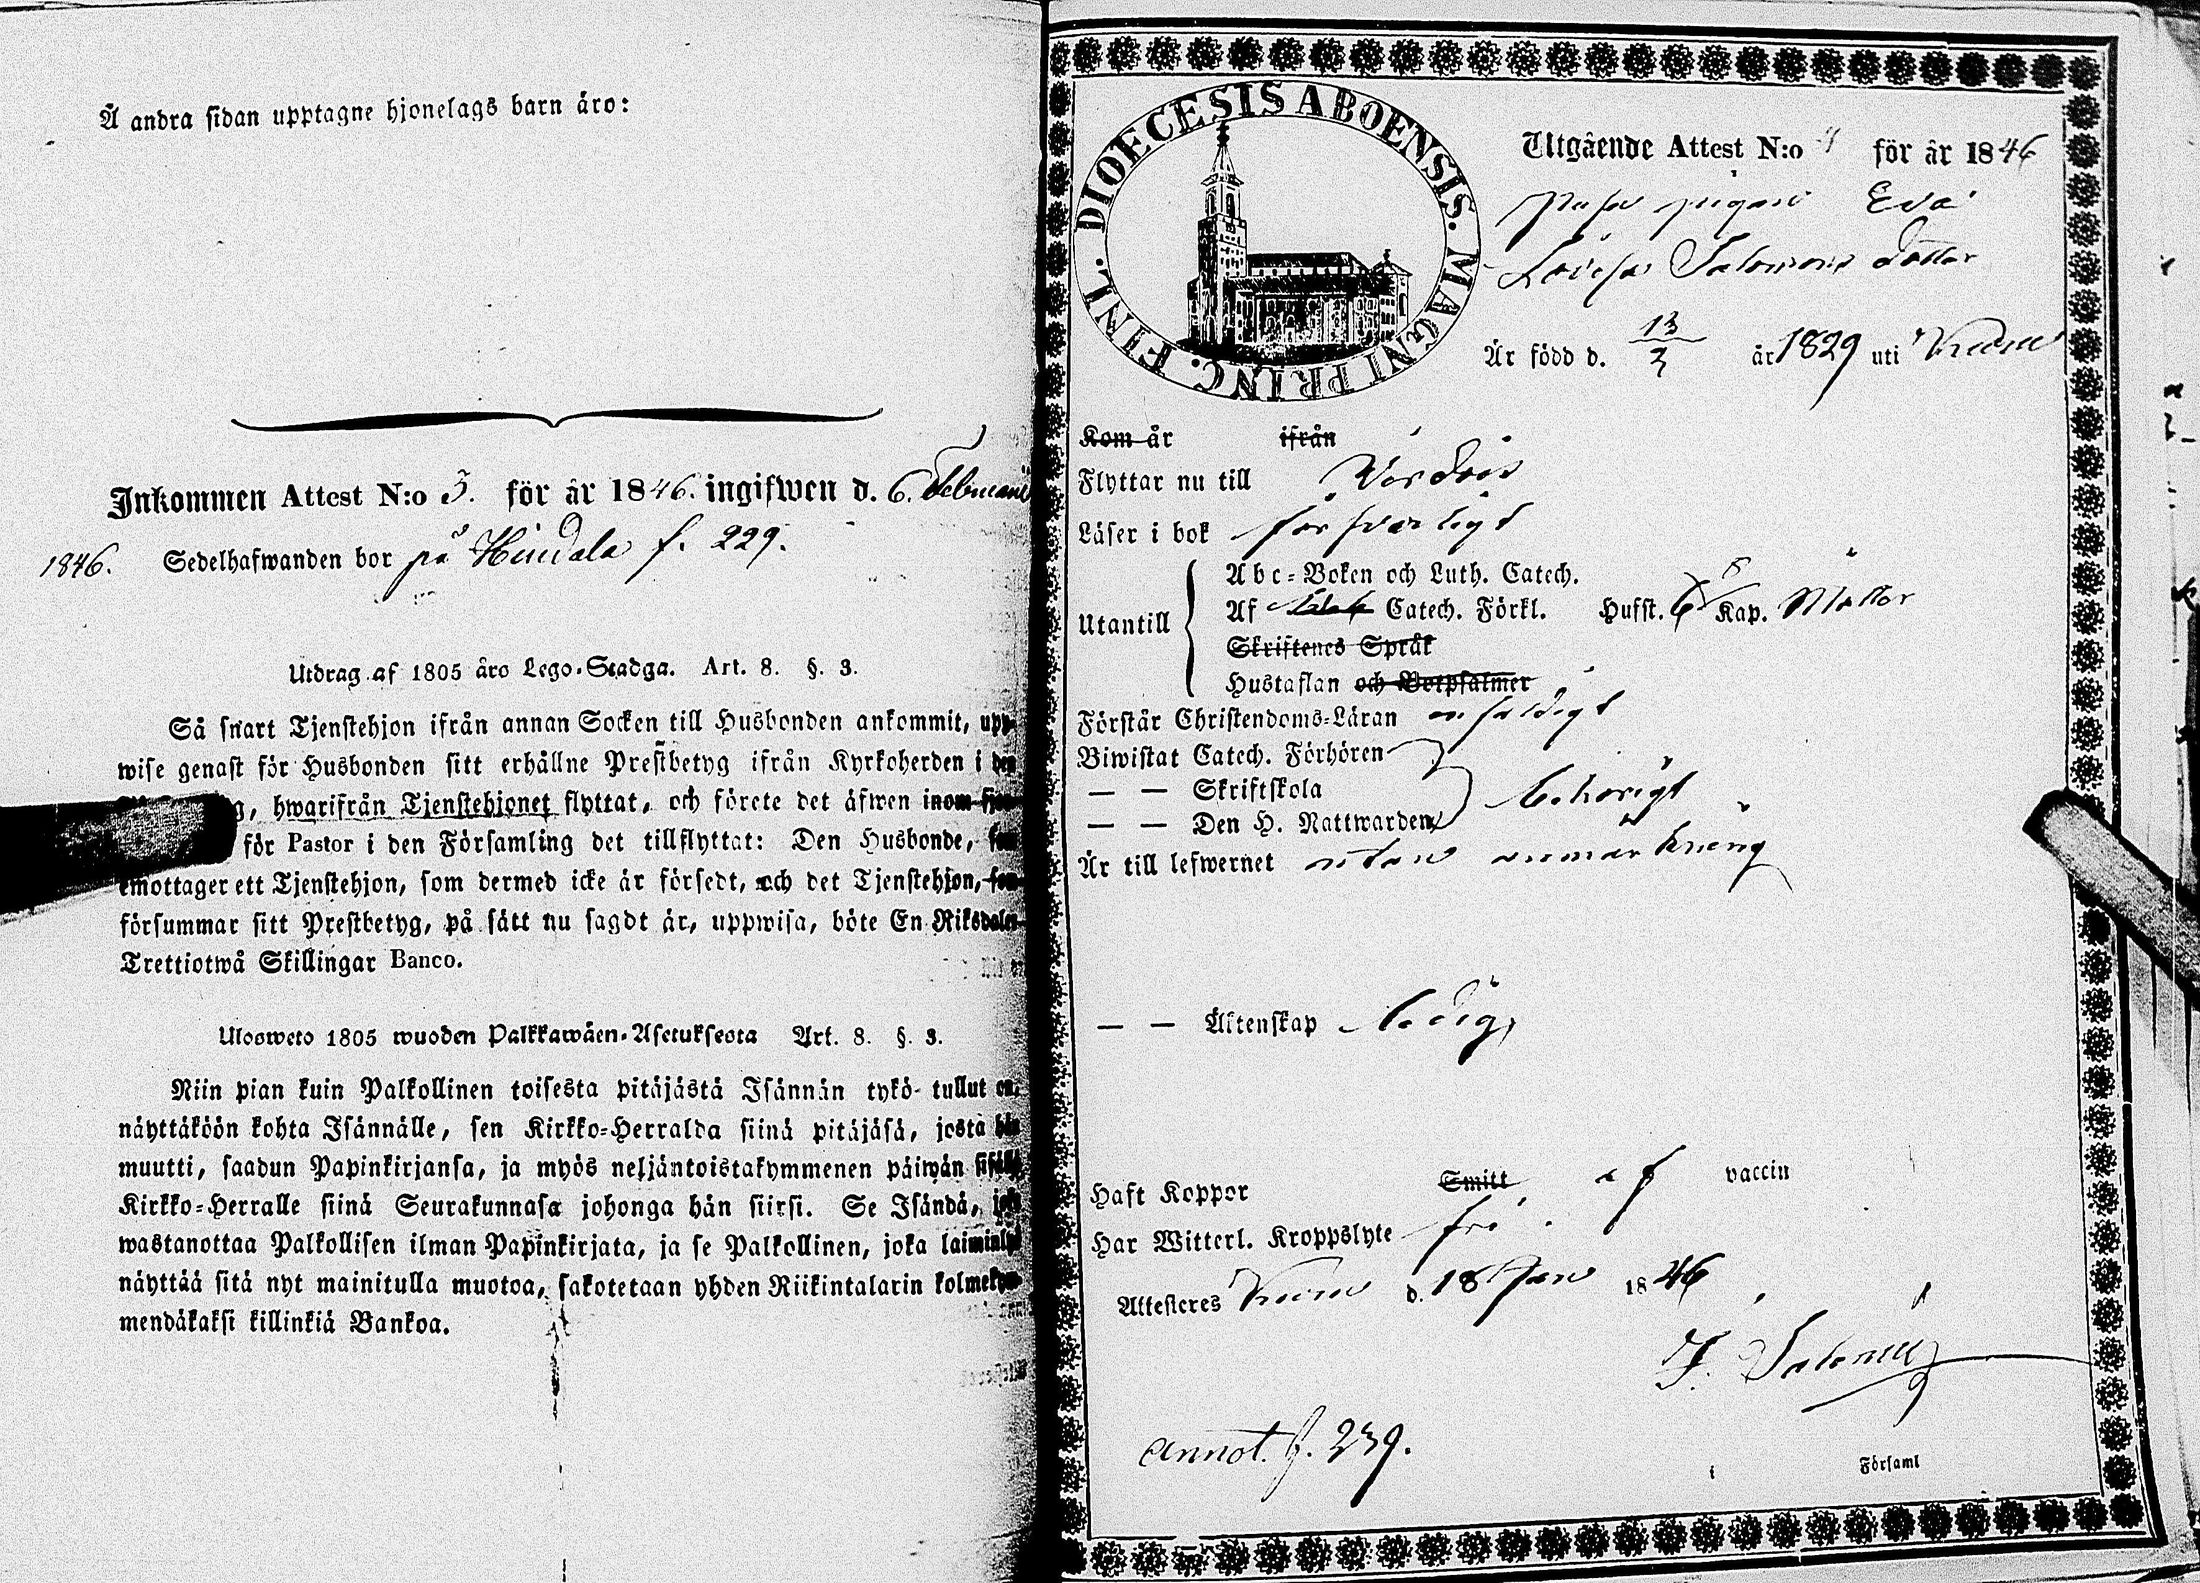 Å andra sidan upptagne hjonelags barn äro:
Inkommen Attest N:o 5. för år 1846. ingifwen d. 6. Februarii
1846. Sedelhafwanden bor på f. 229.
Utdrag af 1805 åro Lego-Stadga. Art. 8. §. 3.
Så snart Tjenstehjon ifrån annan Socken till Husbonden ankommit, upp-
wise genast för Husbonden sitt erhållne Prestbetyg ifrån Kyrkoherden i den
hwarifrån Tjenstehjonet flyttat, och förete det äfwen inom
för Pastor i den Församling det tillflyttat: Den Husbonde, som
emottager ett Tjenstehjon, som dermed icke är försedt, och det Tjenstehjon, som
försummar sitt Prestbetyg, på sätt nu sagdt är, uppwisa, böte En Riksdaler
Trettiotwå Skillingar Banco.
Ulosweto 1805 wuoden Palkkawäen-Asetuksesta Art. 8. §. 3.
Niin pian kuin Palkollinen toisesta pitäjästä Isännän tykö tullut on,
näyttäköön kohta Isännälle, sen Kirkko-Herralda siinä pitäjäsä, josta hän
muutti, saadun Papinkirjansa, ja myös neljäntoistakymmenen päiwän sisällä
Kirkko-Herralle siinä Seurakunnasa johonga hän siirsi. Se Isändä, joka
wastanottaa Palkollisen ilman Papinkirjata, ja se Palkollinen, joka laiminlyö
näyttää sitä nyt mainitulla muotoa, sakotetaan yhden Riikintalarin kolmeky-
mendäkaksi killinkiä Bankoa.
FINL. DIOECESIS ABOENSIS. MAGNI PRINC.
Utgående Attest N:o för år 1846
pigan Eva
Lovisa Salomons dotter
Är född d. 13/3 år 1829 uti
Kom år ifrån
Flyttar nu till Vårdois
Läser i bok försvarligt
Utantill
Abc-Boken och Luth. Catech.
Af Catech. Förkl. Hufst. 6 Kap.
Skriftenes Språk
Hustaflan och Botpsalmer
Förstår Christendoms-Läran enfaldigt
Biwistat Catech. Förhören
— — Skriftskola behörigt
— — Den H. Nattwarden
Är till lefwernet utan anmärkning
— — Äktenskap ledig
Haft Koppor Smitt af vaccin
Har Witterl. Kroppslyte fri.
Attesteres d. 18 Jan 1846
Annot. f. 239.
Församl